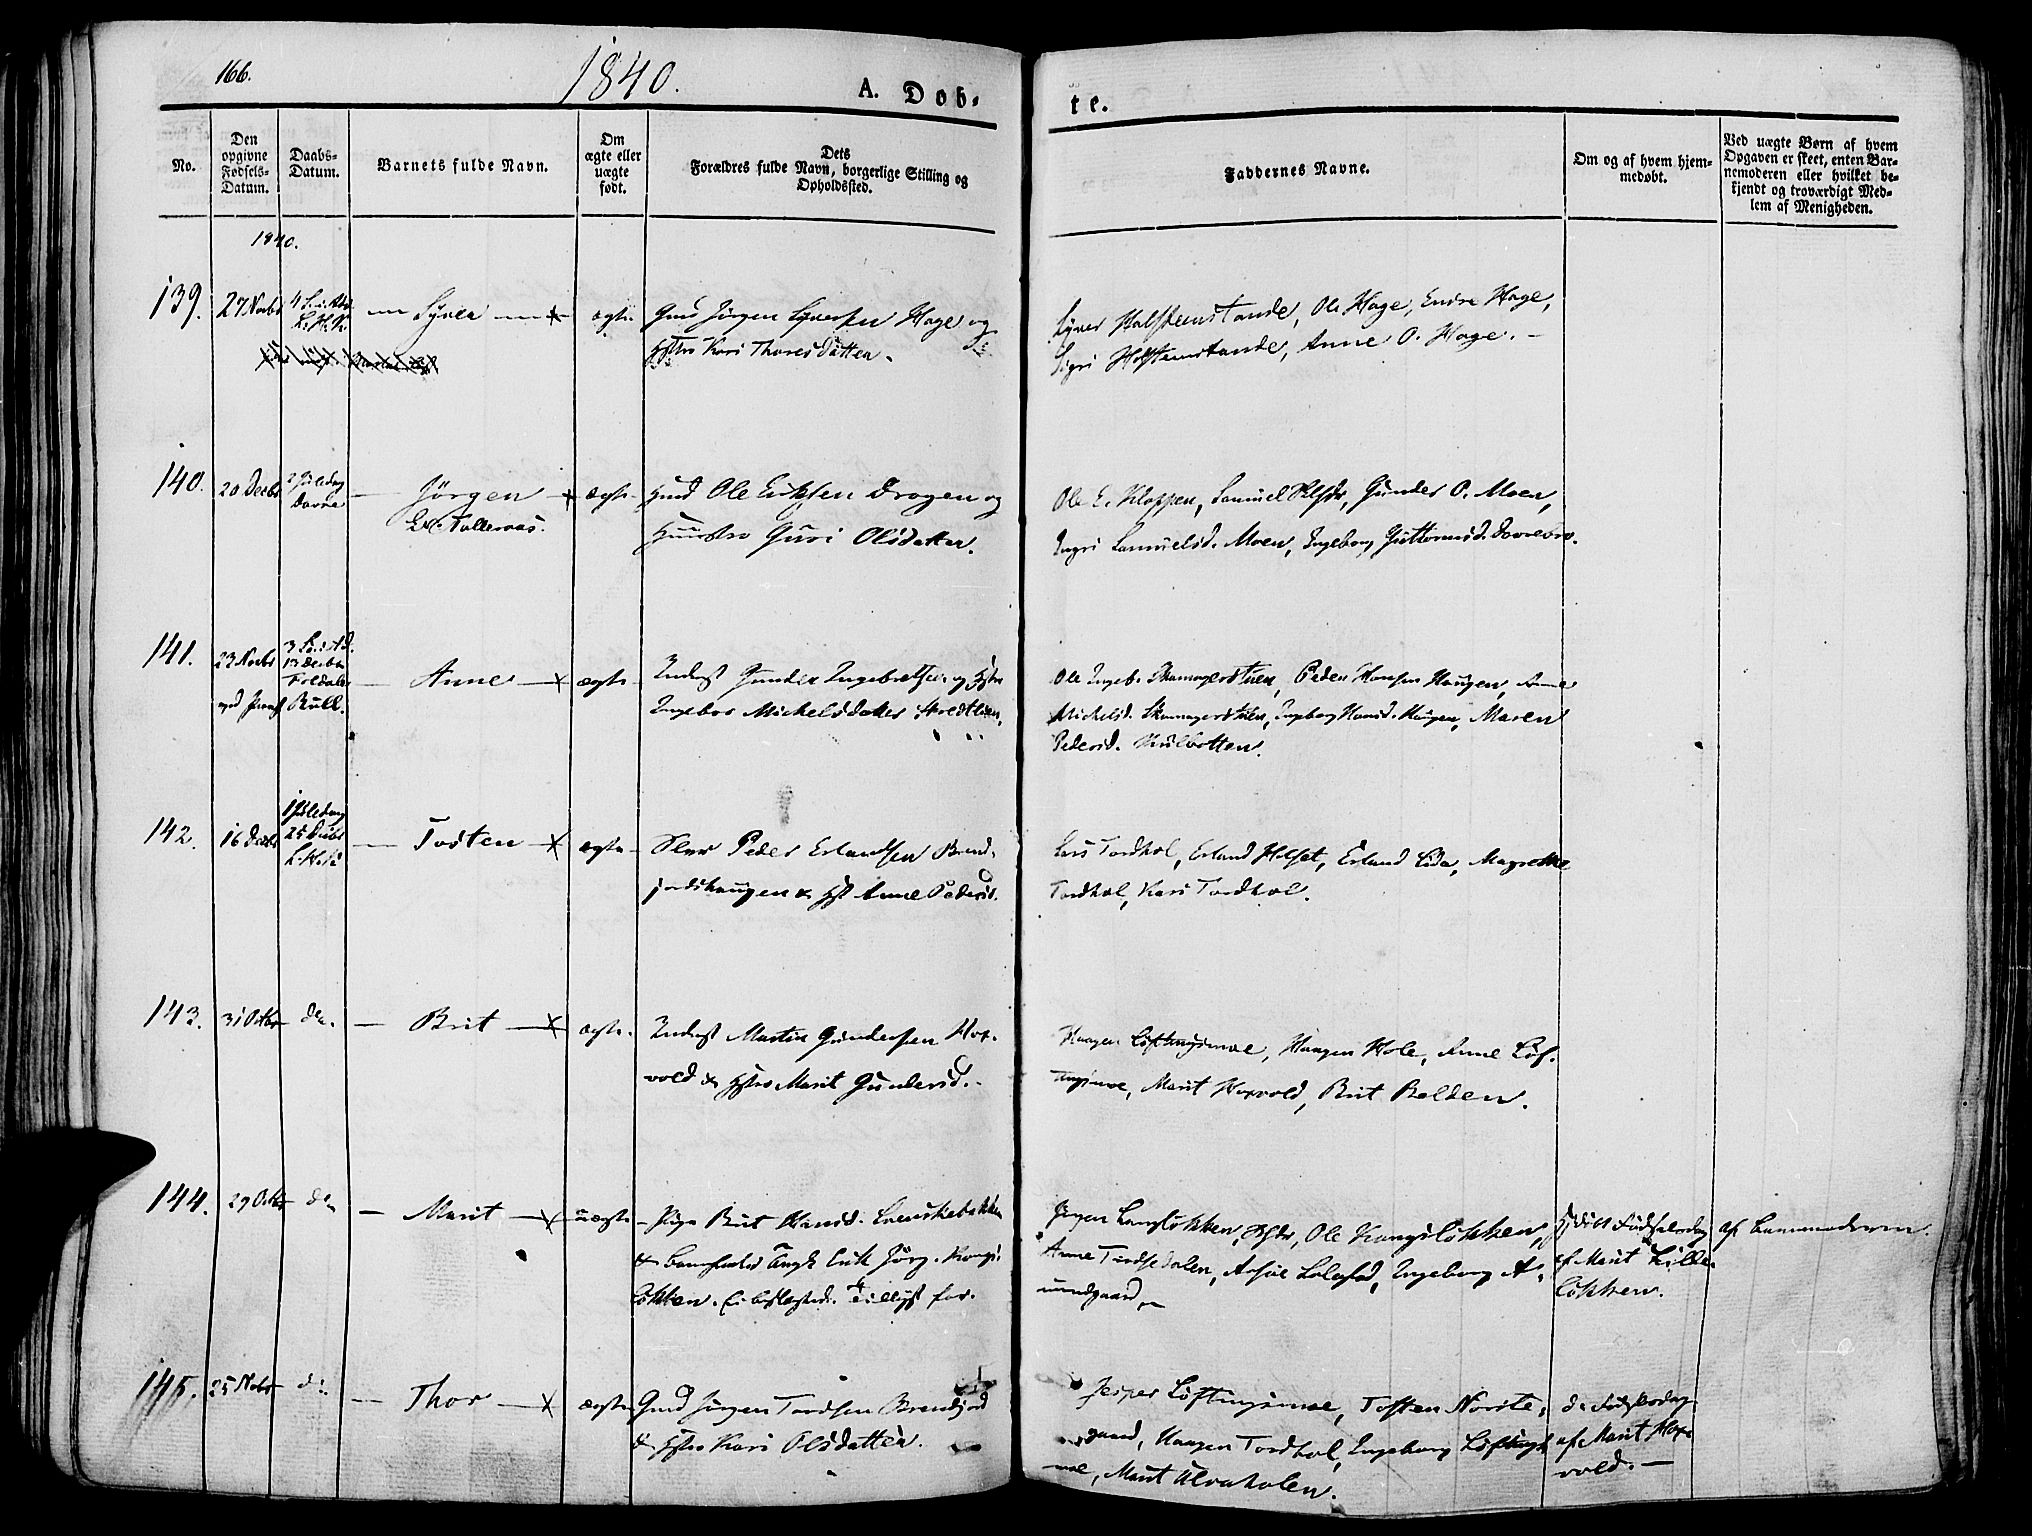 166.
1840.
A. Døb-
te.
No.
Den opgivne Fødsels-Datum.
Daabs-Datum.
Barnets fulde Navn.
Om ægte eller uægte født.
Dets Forældres fulde Navn, borgerlige Stilling og Opholdssted.
Faddernes Navne.
Om og af hvem hjem-medøbt.
Ved uægte Børn af hvem Opgaven er skeet, enten Bar-nemoderen eller hvilket be-kjendt og troværdigt Med-lem af Menigheden.
1840.
139. 27 Novbr 4 S. i Adv. L. H. K. — Syver — ægte
Gmd Jörgen Syversen Hage og
Hstr Kari Thoresdatter.
Syver Holsteenstande, Ole Hage, Endre Hage,
Sigri Holsteenstande, Anne O. Hage. —
140. 20 Decbr 2 Juledag Dovre — Jörgen — ægte
Gmd Ole Eriksen Drogen og
Huustro Guri Olsdatter.
Ole E. Kloppen, Samuel, Gunder O. Moen,
Ingri Samuelsd. Moen, Ingeborg Guttormsd. Dovrebro.
141. 23 Novbr 3 S. i Ad. 13 Decbr Foldal — Anne — ægte
Inderst Gunder Ingebretsen og Hstr
Ingebor Mickelsdatter
Ole Ingeb. Skamagerstuen, Peder Hansen Haugen, Anne
Mickelsd. Skamagerstuen, Ingeborg Hansd. Haugen, Maren
Pedersd. Kulbotten.
142. 16 Decbr 1 Juledag 25 Decbr — Tosten — ægte
Peder Erlandsen Brend-
jordshaugen & Hst Anne Pedersd.
Lars Tordhol, Erland Holset, Erland Lida, Magrethe
Tordhol, Kari Tordhol.
143. 31 Octbr do. — Brit — ægte
Inderst Martin Gundersen Hor-
vold & Hstr Marit Gundersd. -
Haagen Löftingsmoe, Haagen Hole, Anne Löf-
tingsmoe, Marit Horvold, Brit Bolden.
144. 29 Octbr do — Marit — uægte
Pige Brit Hansd.
& Barnefader Ungk Erik Jörg. Kongs-
lökken.
Jörgen Langlökken, Ole Kongslökken,
Anne Tordsedalen, Ingeborg A-
mundgaard. —
Hjdöbt Födselsdag
af Marit Lille-
lökken.
af Barnemoderen.
145. 25 Nobr do. — Thor — ægte
Gmd Jörgen Tordsen Brendjord
& Hstr Kari Olsdatter.
Jesper Löftingsmoe, Tosten Norste-
gaard, Haagen Tordhol, Ingeborg Löftings-
moe, Marit Ulvaholen.
do Födselsdag
af Marit Hor-
vold. —